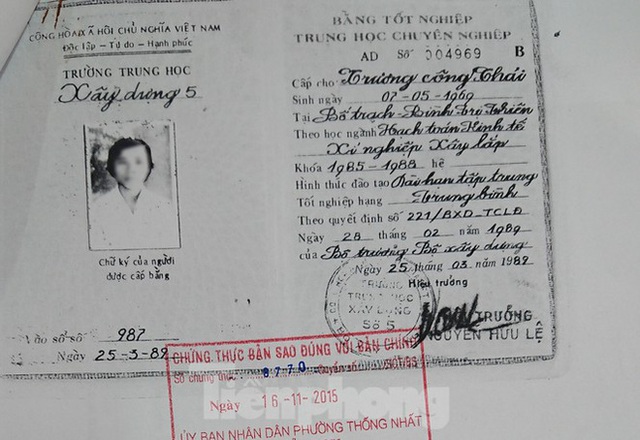 CỘNG HÒA XÃ HỘI CHỦ NGHĨA VIỆT NAM
Độc lập - Tự do - Hạnh phúc
TRƯỜNG TRUNG HỌC
Xây dựng 5
Chữ ký của người
được cấp bằng
Vào sổ số 987
Ngày 25-3-89
BẰNG TỐT NGHIỆP
TRUNG HỌC CHUYÊN NGHIỆP
AD Số 004969 B
Cấp cho Trương công Thái
Sinh ngày 07-05-1969
Tại Bố trạch - Bình trị Thiên
Theo học ngành Hạch toán Kinh tế
Xí nghiệp Xây lắp
Khóa 1985-1988 hệ
Hình thức đào tạo Dài hạn tập trung
Tốt nghiệp hạng Trung bình
Theo quyết định số 221/BXD_TCLĐ
Ngày 28 tháng 02 năm 1989
của Bộ trưởng Bộ xây dựng
Ngày 25 tháng 03 năm 1989
Hiệu trưởng
TRƯỜNG
TRUNG HỌC
XÂY DỰNG
Số 5
TRƯỞNG
NGUYỄN HỮU LỆ
CHỨNG THỰC BẢN SAO ĐÚNG VỚI BẢN CHÍNH
Số chứng thực 8770 Quyển số
Ngày 16-11-2015
tienphong
ỦY BAN NHÂN DÂN PHƯỜNG THỐNG NHẤT